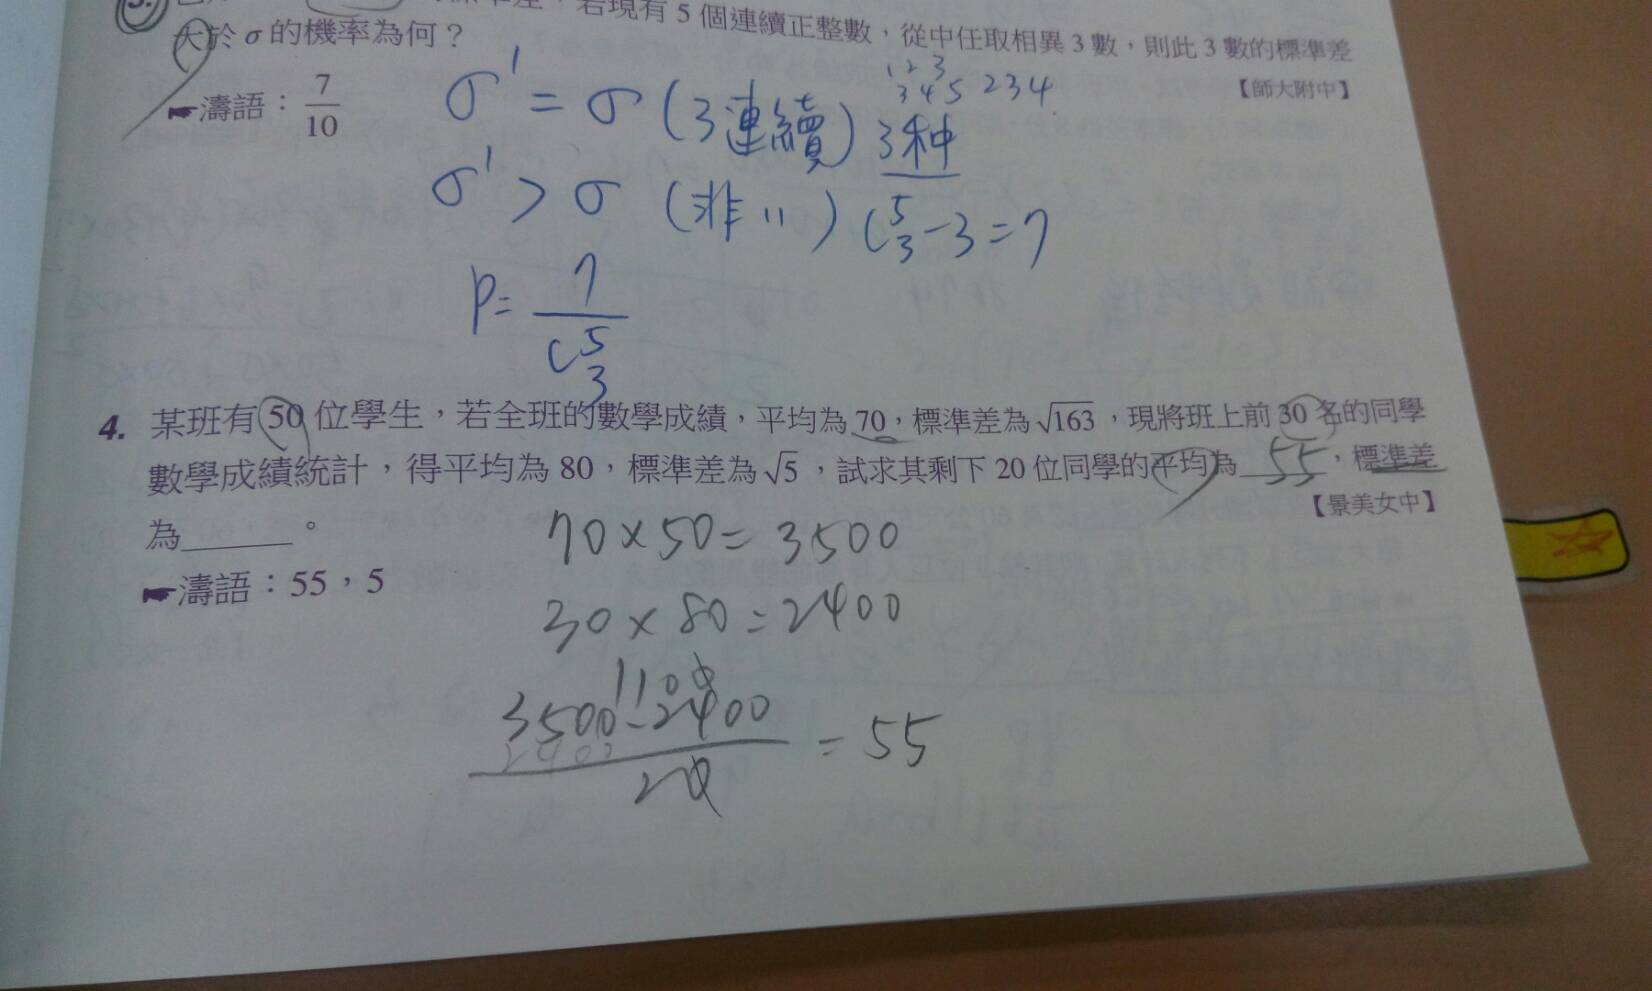 標準差,若現有5個連續正整數,從中任取相異3數,則此3數的標準差
大於σ的機率為何?
【師大附中】
☛濤語:7/10
σ' = σ (3連續) 3种
1 2 3
3 4 5 2 3 4
σ' > σ (非 〃) C⁵₃-3=7
P= 7/C⁵₃
4. 某班有50位學生,若全班的數學成績,平均為70,標準差為√163,現將班上前30名的同學
數學成績統計,得平均為80,標準差為√5,試求其剩下20位同學的平均為 55 ,標準差
為______。
【景美女中】
☛濤語:55,5
70×50=3500
30×80=2400
1100
3500-2400/20 = 55